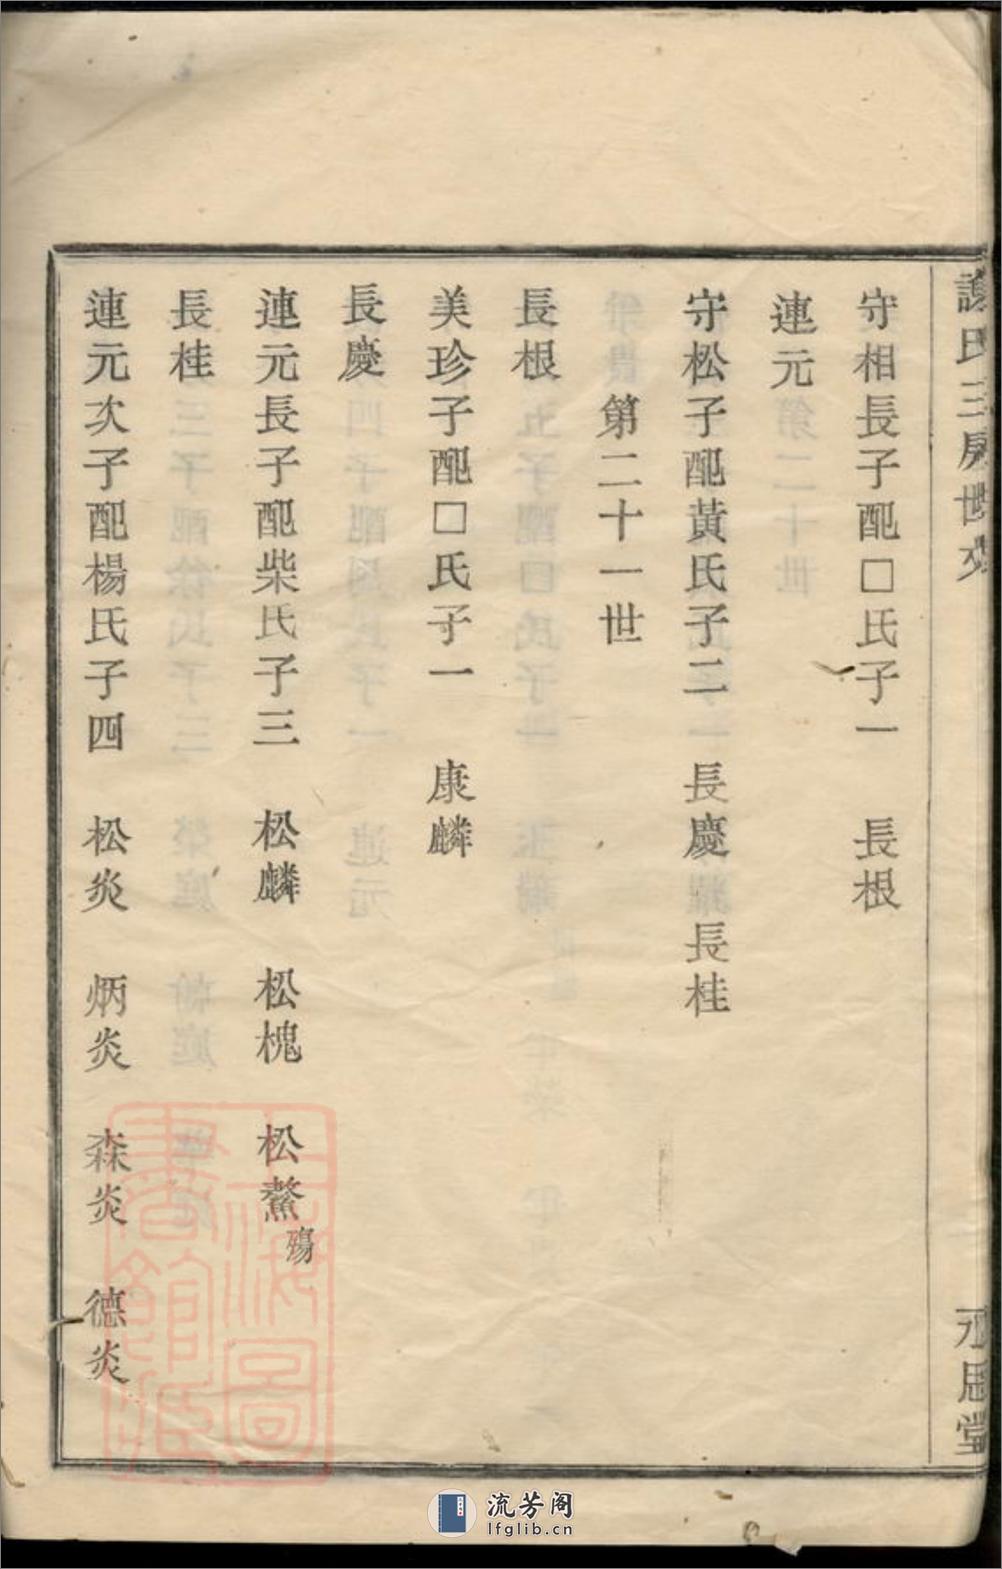 氏三房世系
永思堂
守相長子配□氏子一　長根
連元
守松子配黃氏子二　長慶　長桂
第二十一世
長根
美珍子配□氏子一　康麟
長慶
連元長子配柴氏子三　松麟　松槐　松鰲殤
長桂
連元次子配楊氏子四　松炎　炳炎　森炎　德炎
上海圖書館藏
流芳阁
lfglib.cn